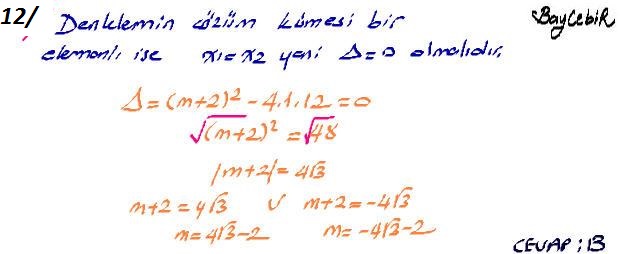 12/ Denklemin çözüm kümesi bir BayCebiR
elemanlı ise x1=x2 yani Δ=0 olmalıdır.
Δ=(m+2)²-4.1.12=0
√(m+2)²=√48
|m+2|=4√3
m+2=4√3 ∪ m+2=-4√3
m=4√3-2 m=-4√3-2
CEVAP:B